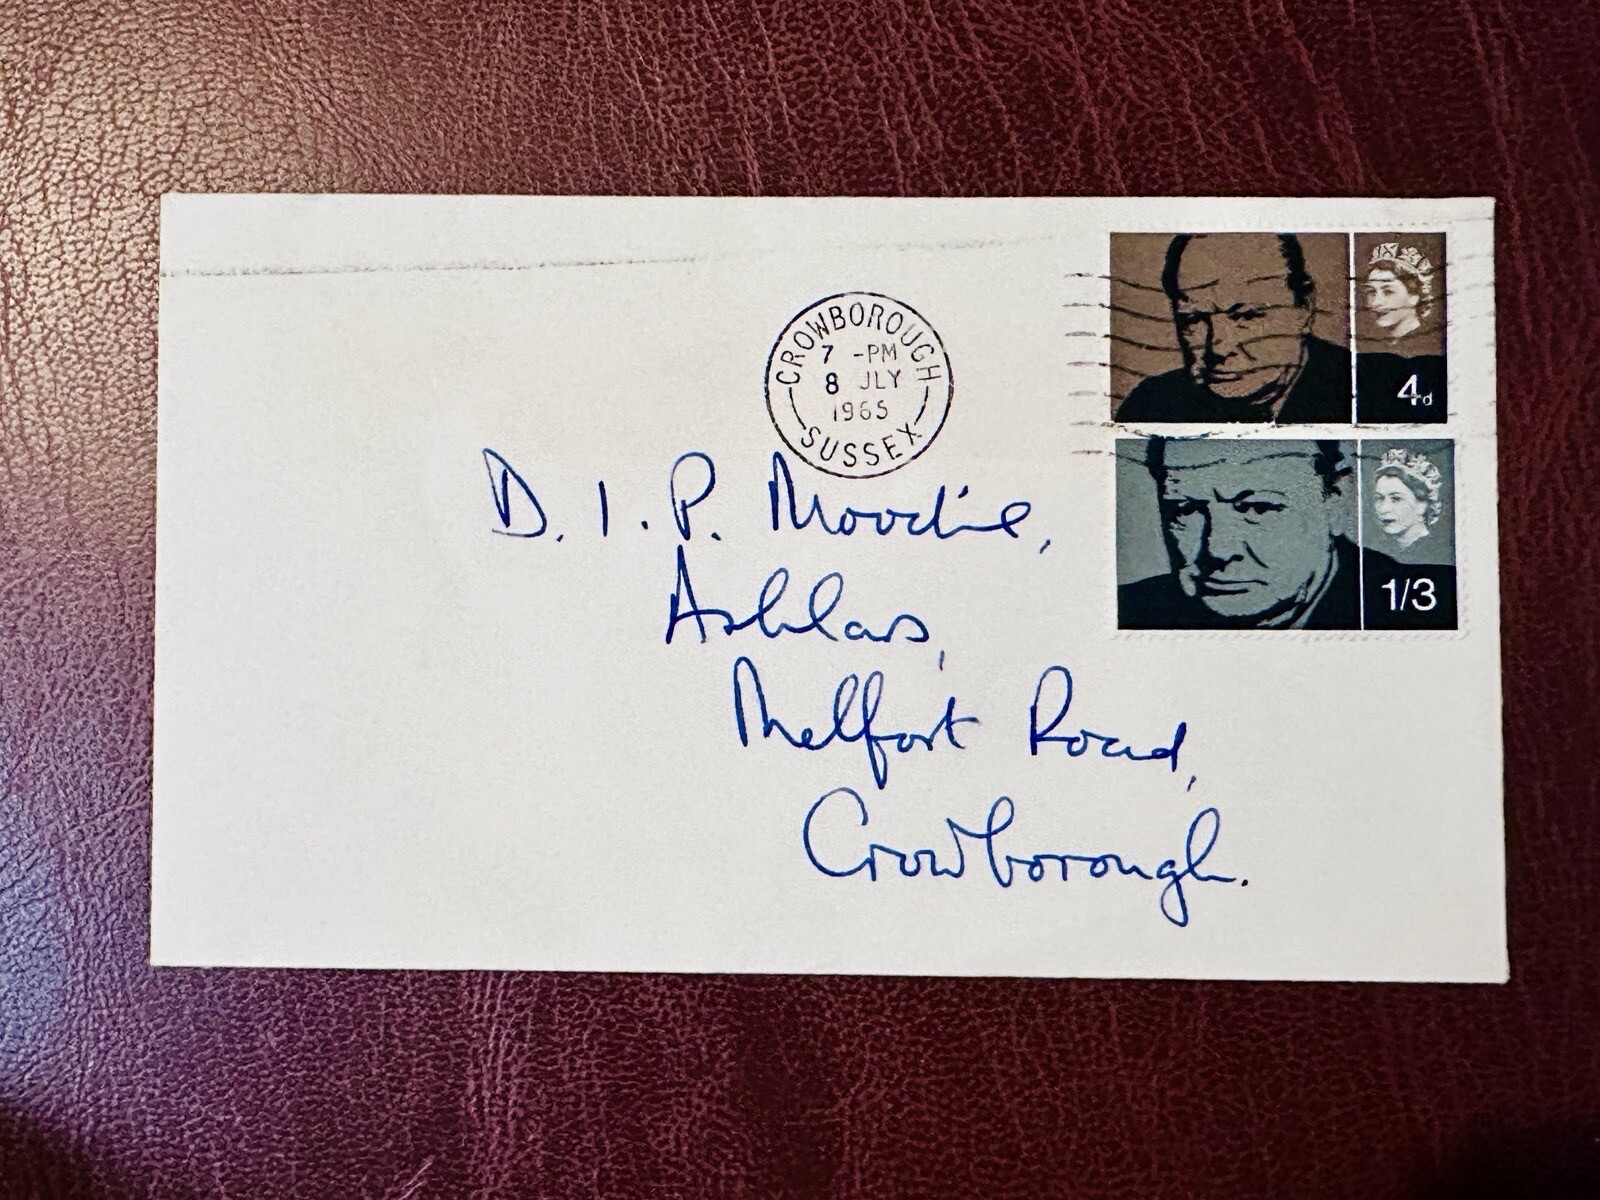 CROWBOROUGH
7 -PM
8 JLY
1965
SUSSEX
4d
1/3
D. I. P. Moodie,
Ashlars,
Melfort Road,
Crowborough.